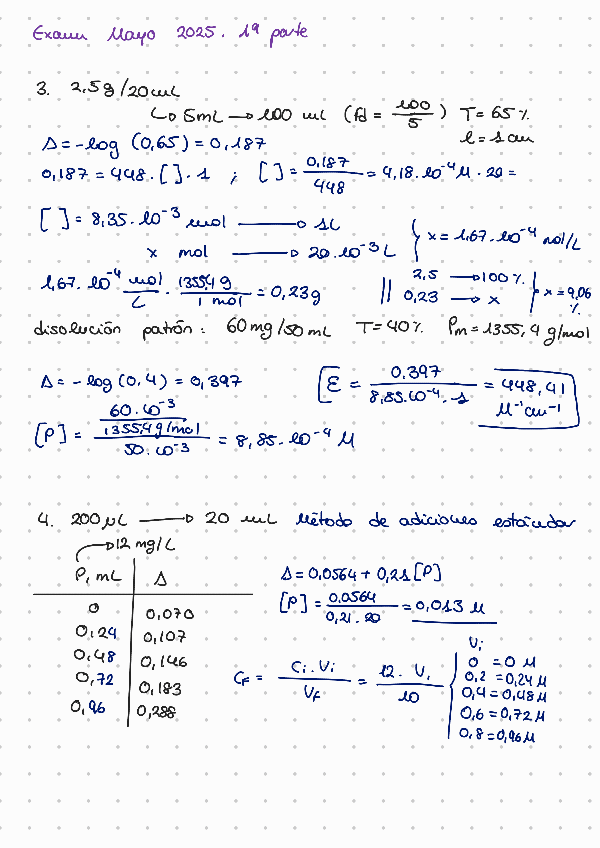 Examen Mayo 2025. 1ª parte
3. 2,5g/20mL
↳ 5mL → 100 mL (Fd = 100/5) T = 65%
l = 1cm
A = -log (0,65) = 0,187
0,187 = 448 · [ ] · 1 ; [ ] = 0,187/448 = 4,18·10⁻⁴ M · 20 =
[ ] = 8,35·10⁻³ mol → 1L
x mol → 20·10⁻³ L } x = 1,67·10⁻⁴ mol/L
1,67·10⁻⁴ mol/L · 1355,4 g/1 mol = 0,23g || 2,5 → 100% 0,23 → x } x = 9,06%
disolución patrón: 60mg/50mL T = 40% Pm = 1355,4 g/mol
A = -log(0,4) = 0,397
[ε = 0,397/8,85·10⁻⁴·1 = 448,41 M⁻¹cm⁻¹
[P] = 60·10⁻³/1355,4g/mol/50·10⁻³ = 8,85·10⁻⁴ M
4. 200μL → 20 mL Método de adiciones estándar
→ 12 mg/L
P, mL A
0 0,070
0,24 0,107
0,48 0,146
0,72 0,183
0,96 0,288
A = 0,0564 + 0,21[P]
[P] = 0,0564/0,21·20 = 0,013 M
CF = Ci·Vi/VF = 12·Vi/10
Vi
0 = 0 M
0,2 = 0,24M
0,4 = 0,48M
0,6 = 0,72M
0,8 = 0,96M